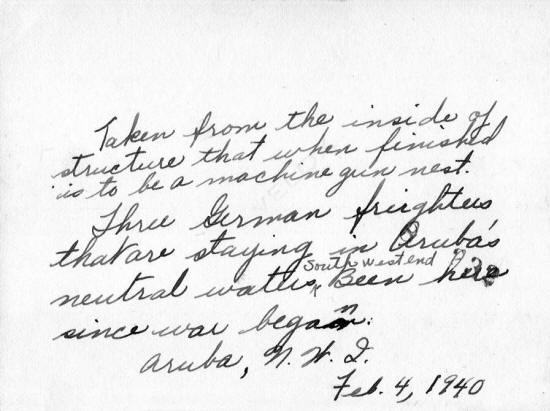 Taken from the inside of
structure that when finished
is to be a machine gun nest.
Three German freighters
that are staying in Aruba's
South west end
neutral waters, Been here
since war began.
Aruba, N. W. I.
Feb. 4, 1940